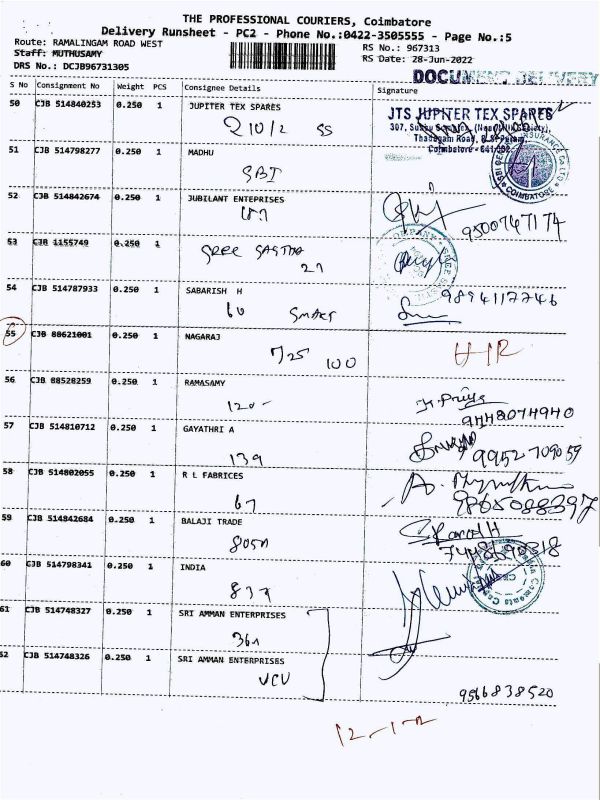 THE PROFESSIONAL COURIERS, Coimbatore
Delivery Runsheet - PC2 - Phone No.:0422-3505555 - Page No.:5
Route: RAMALINGAM ROAD WEST
RS No.: 967313
Staff: MUTHUSAMY
RS Date: 28-Jun-2022
DRS No.: DCJB96731305
DOCUMENT DELIVERY
S No Consignment No Weight PCS Consignee Details Signature
50 CJB 514840253 0.250 1 JUPITER TEX SPARES
JTS JUPITER TEX SPARES
Coimbatore - 641 002
210/2 SS
51 CJB 514798277 0.250 1 MADHU
SBI
COIMBATORE
52 CJB 514842674 0.250 1 JUBILANT ENTEPRISES
9500747174
53 CJB 1155749 0.250 1
SREE SASTHA
27
54 CJB 514787933 0.250 1 SABARISH H
9894117746
60
55 CJB 88621001 0.250 1 NAGARAJ
725 100
56 CJB 88528259 0.250 1 RAMASAMY
120-
9448074940
57 CJB 514810712 0.250 1 GAYATHRI A
139
9952709059
58 CJB 514802055 0.250 1 R L FABRICES
67
9865088397
59 CJB 514842684 0.250 1 BALAJI TRADE
60 CJB 514798341 0.250 1 INDIA
61 CJB 514748327 0.250 1 SRI AMMAN ENTERPRISES
62 CJB 514748326 0.250 1 SRI AMMAN ENTERPRISES
9566838520